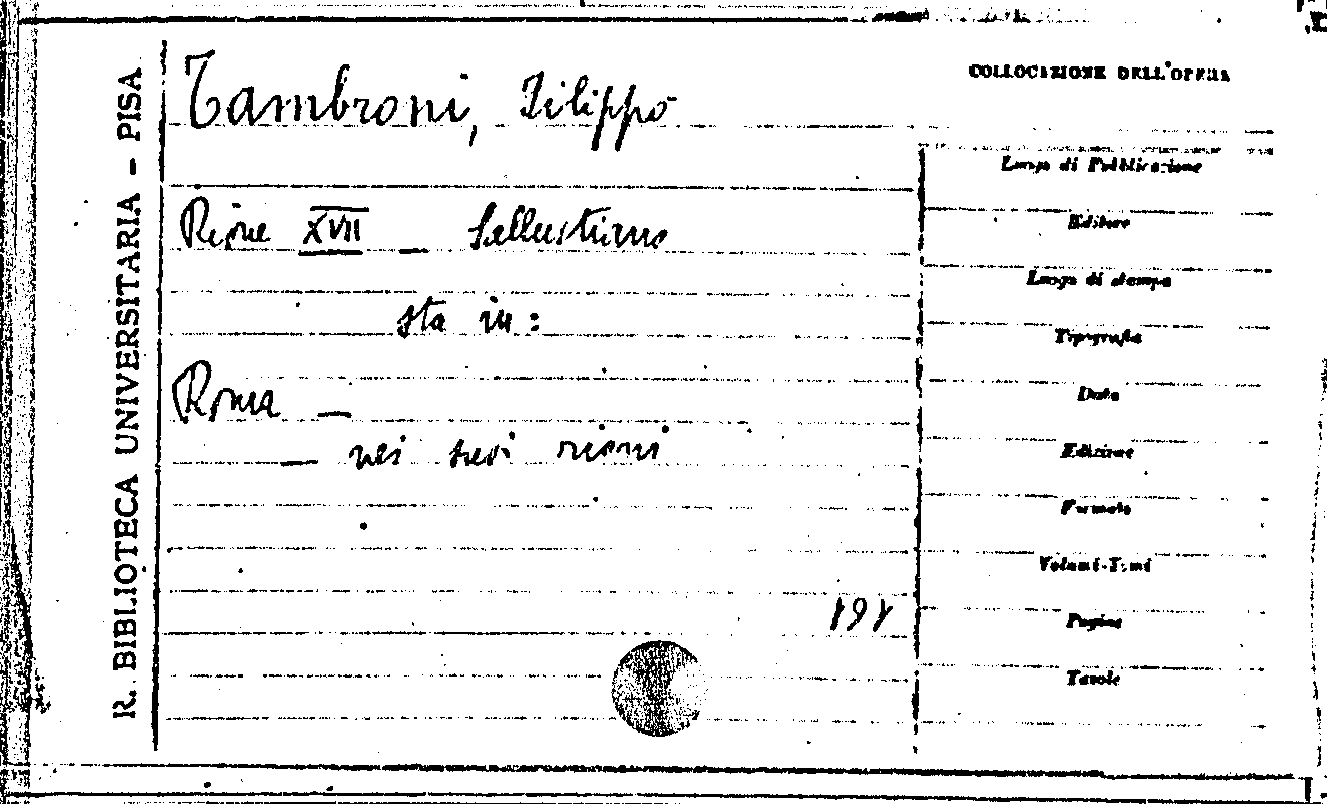 R. BIBLIOTECA UNIVERSITARIA - PISA
Tambroni, Filippo
Rione XVII - Sallustiano
sta in:
Roma -
- nei suoi rioni
191
COLLOCAZIONE DELL'OPERA
Luogo di Pubblicazione
Editore
Luogo di stampa
Tipografia
Data
Edizione
Formato
Volumi-Tomi
Pagine
Tavole